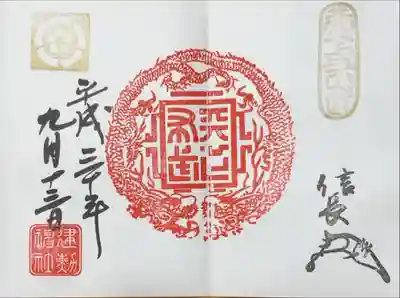 信長
天下
布武
平成三十年
九月十三日
建勲
神社